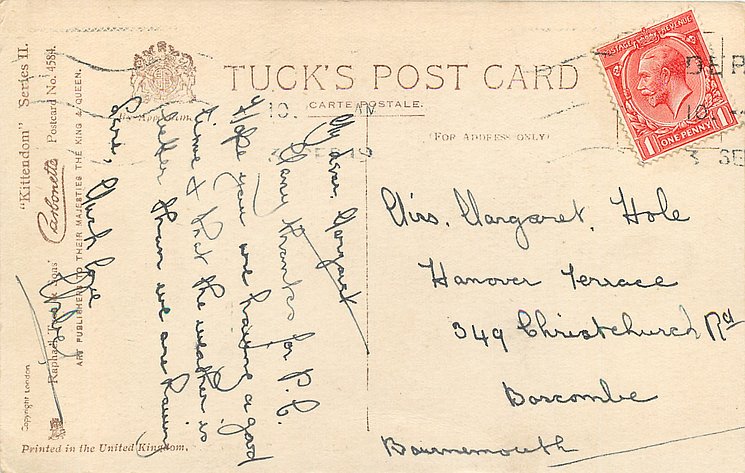 TUCK'S POST CARD
CARTE POSTALE.
(FOR ADDRESS ONLY)
By Appointment.
"Kittendom" Series II.
Carbonette Postcard No. 4584.
Raphael Tuck & Sons'
ART PUBLISHERS TO THEIR MAJESTIES THE KING & QUEEN.
Copyright London
Printed in the United Kingdom.
POSTAGE REVENUE
1 ONE PENNY 1
DEP
10.
3 SE
10. AM
SEP 19
My dear Margaret
Many thanks for P.C.
Hope you are having a good
time & that the weather is
better than we are having
here, Much love
Mrs. Margaret, Hole
Hanover Terrace
349 Christchurch Rd
Boscombe
Bournemouth